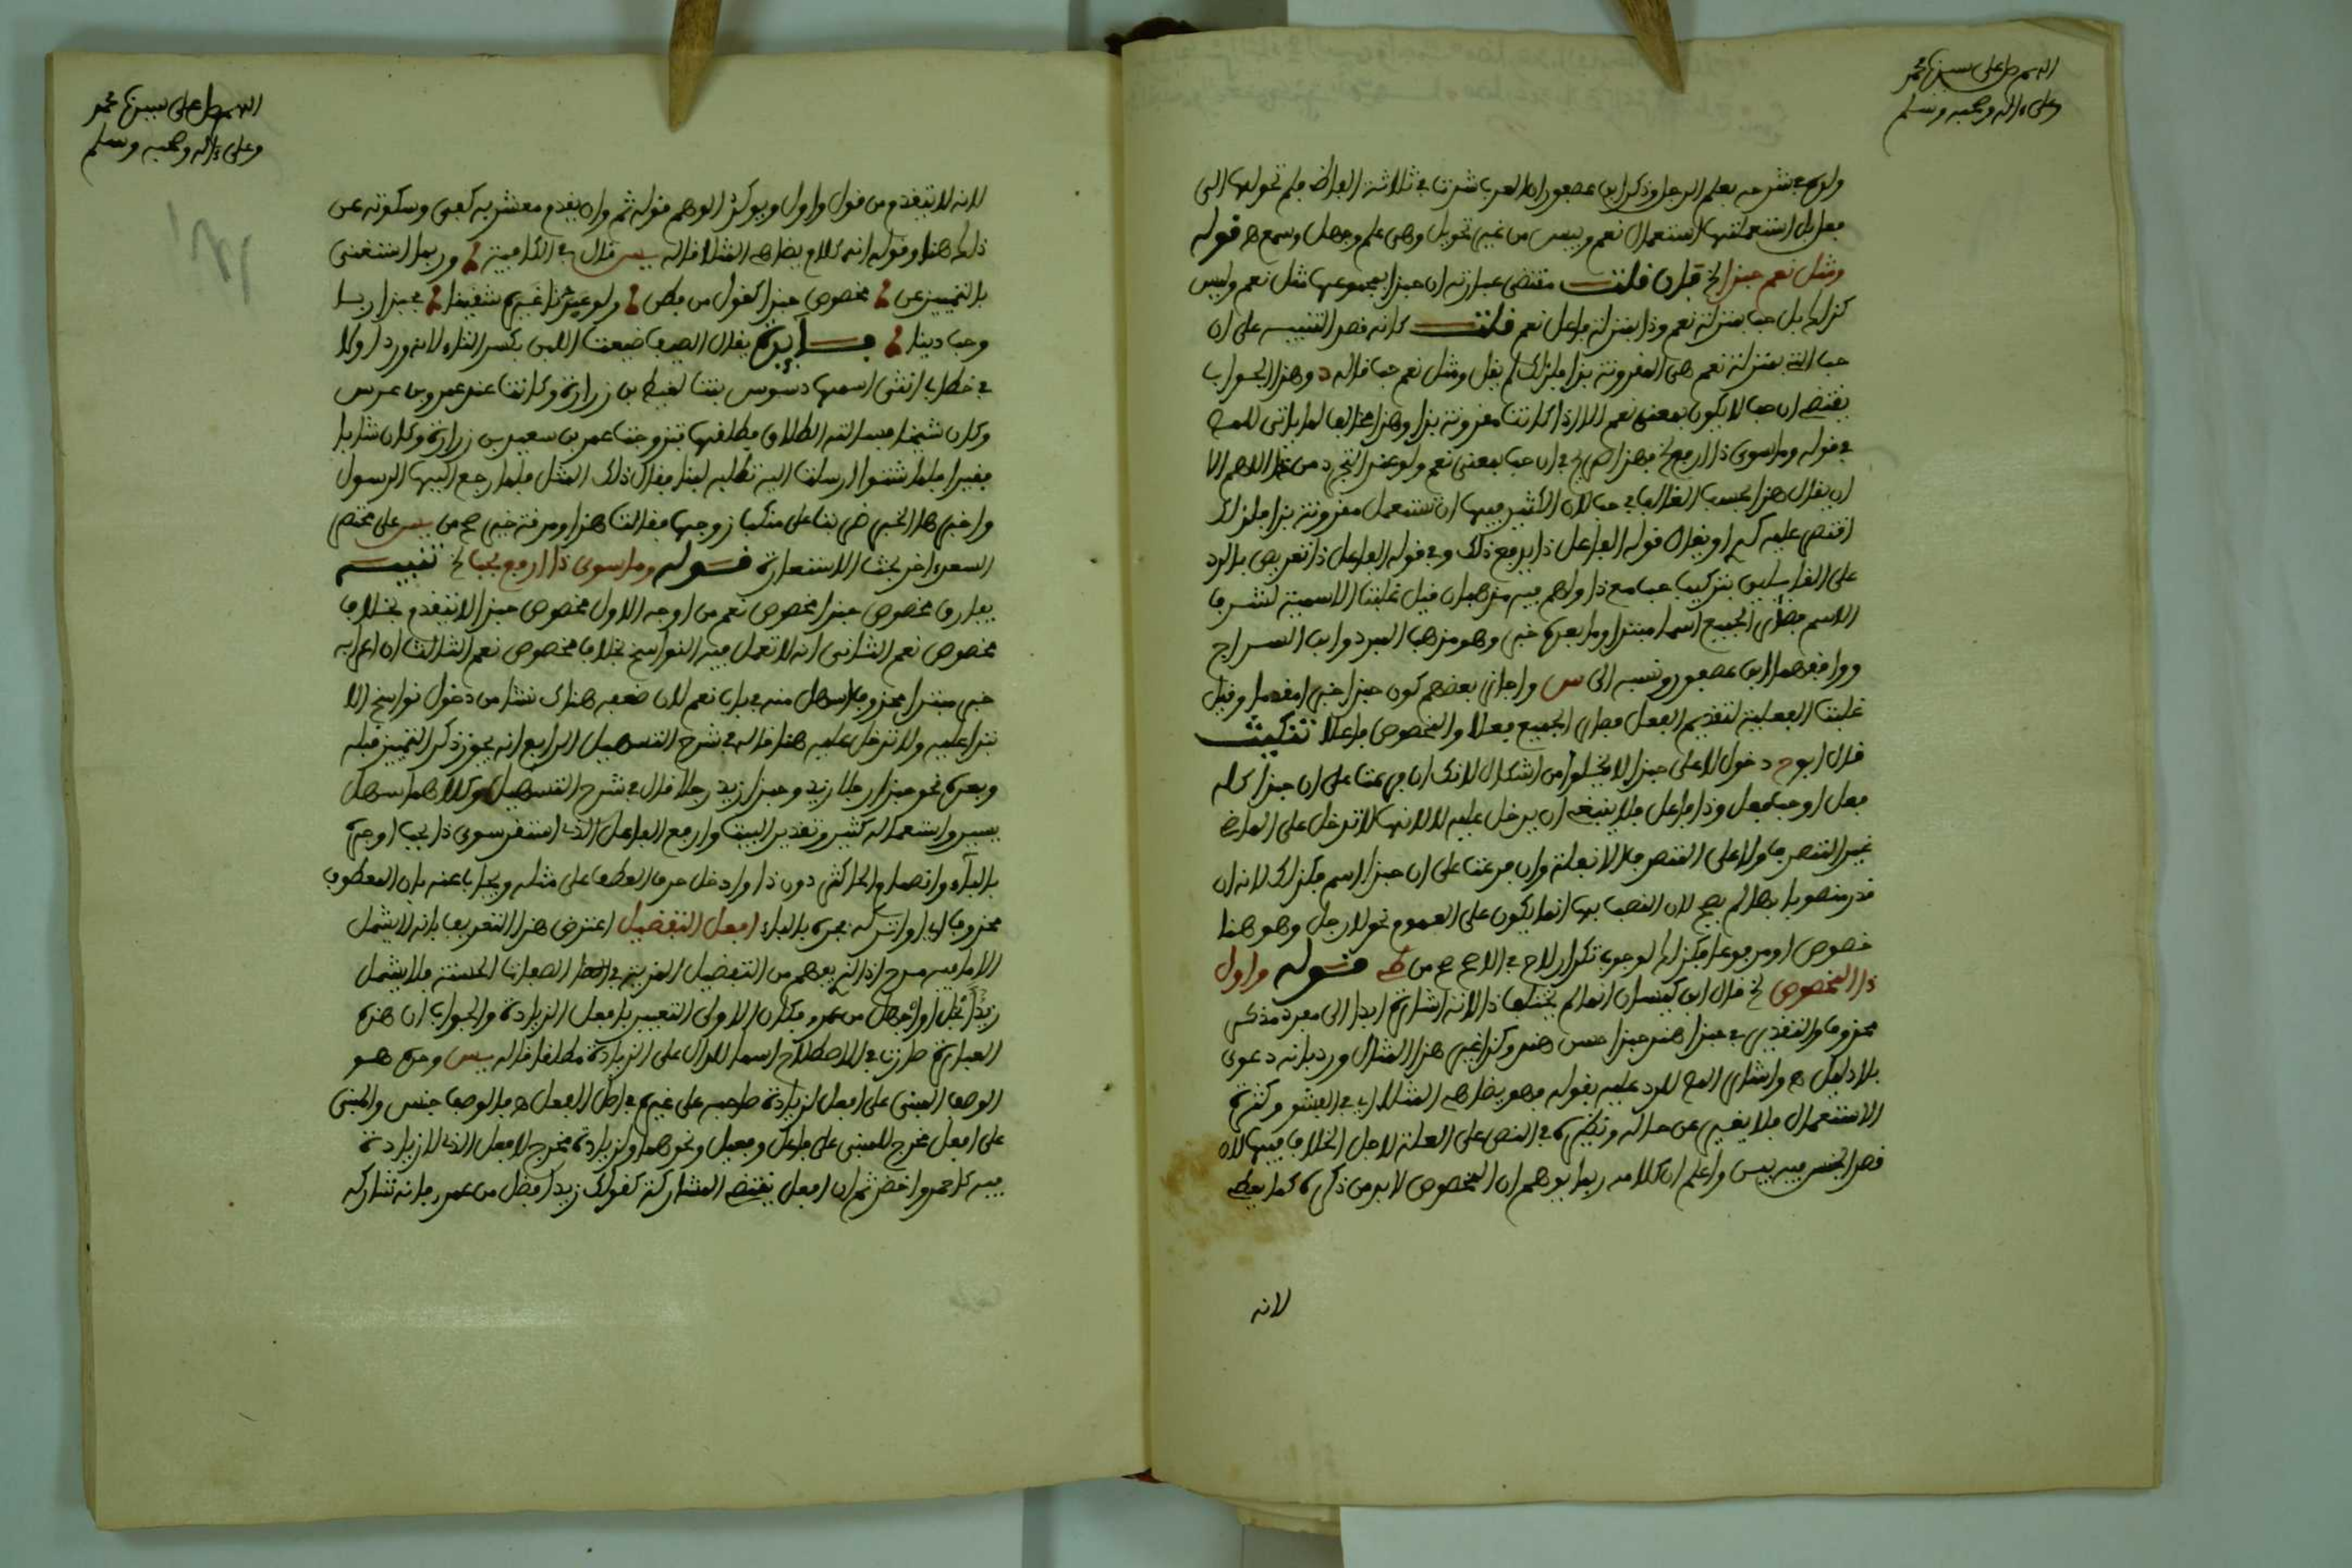 اللهم صل على سيدنا محمد
وعلى ءاله وصحبه وسلم
ولده في شرحه بعلم الرجل وذكر ابن عصفور ان العرب شذت في ثلاثة الفاظ فلم تحولها الى
فعل بل استعملتها استعمال نعم وبيس من غير تحويل وهي علم وجهل وسمع ه قوله
ومثل نعم حبذا الخ فان قلت مقتضى عبارته ان حبذا بمجموعها مثل نعم وليس
كذلك بل حب بمنزلة نعم وذا بمنزلة فاعل نعم قلت كانه قصد التنبيه على ان
حب التي بمنزلة نعم هي المقرونة بذا فلذلك لم يقل ومثل نعم حب قاله د وهذا الجواب
يقتضي ان حب لا يكون بمعنى نعم الا اذا كانت مقرونة بذا وهذا مخالف لما ياتي للمص
في قوله وما سوى ذا ارفع الخ فهذا صريح في ان حب بمعنى نعم ولو عند التجرد من ذا اللهم الا
ان يقال هذا بحسب الغالب في حب لان الاكثر فيها ان تستعمل مقرونة بذا فلذلك
اقتصر عليه او يقال قوله الفاعل ذا يدفع ذلك وفي قوله الفاعل ذا تعريض بالرد
على القايلين بتركيب حب مع ذا ولهم فيه مذهبان قيل غلبت الاسمية لشرف
الاسم فصار الجميع اسما مبتدا وما بعده خبر وهو مذهب المبرد وابن السراج
ووافقهما ابن عصفور ونسبه الى س واجاز بعضهم كون حبذا خبرا مقدما وقيل
غلبت الفعلية لتقديم الفعل فصار الجميع فعلا والمخصوص فاعلا تنكيت
قال ابو ح دخول لا على حبذا لا يخلوا من اشكال لانك ان فرعت على ان حبذا كله
فعل او حب فعل وذا فاعل فلا ينبغي ان يدخل عليه لا لانها لا تدخل على الماضي
غير المتصرف ولا على المتصرف الا بقلة وان فرعت على ان حبذا اسم فكذلك لانه ان
قدر منصوبا بها لم يصح لان النصب بها انما يكون على العموم نحو لا رجل وهو هنا
خصوص او مرفوعا فكذلك لوجوب تكرار لا ح في الاصح من قوله واول
ذا المخصوص الخ قال ابن كيسان انما لم يختلف ذا لانه اشارة ابدا الى مفرد مذكر
محذوف والتقدير في حبذا هند حبذا حسن هند وكذا غير هذا المثال ورد بانه دعوى
بلا دليل ه واشار المص للرد عليه بقوله فهو يضاهي المثلا اي في الفشو وكثرة
الاستعمال فلا يغير عن حاله ونظيره في النص على العلة لاجل الخلاف فيها لان
قصد الجنس فيه بيس واعلم ان كلامه ربما يوهم ان المخصوص لا بد من ذكره كما يعطي
لانه
اللهم صل على سيدنا محمد
وعلى ءاله وصحبه وسلم
لانه لا يتقدم من قول واول ويوكد الوهم قوله ثم وان يقدم مشعر به كفى وسكوته عن
ذلك هنا وقوله انه كلام يضاهي المثلا قاله يس قال في الكافية وربما استغنى
بالتمييز عن مخصوص حبذا كقول من فطن ولو عبدنا غيره شقينا فحبذا ربا
وحب دينا فايدة يقال الصيف ضيعت اللبن بكسر التاء لانه ورد اولا
في خطاب انثى اسمها دسوس بنت لقيط بن زرارة وكانت عند عمرو بن عدس
وكان شيخا فسالته الطلاق فطلقها فتزوجت عمر بن سعيد بن زرارة وكان شابا
فقيرا فلما شتوا ارسلت اليه تطلبه لبنا فقال ذلك المثل فلما رجع اليها الرسول
واخبرها الخبر ضربت على منكب زوجها فقالت هذا ومذقه خير صح من يس على مختصر
السعد اخر بحث الاستعارة قوله وما سوى ذا ارفع بحب الخ تنبيه
يفارق مخصوص حبذا مخصوص نعم من اوجه الاول مخصوص حبذا لا يتقدم بخلاف
مخصوص نعم الثاني انه لا تعمل فيه النواسخ بخلاف مخصوص نعم الثالث ان اعرابه
خبر مبتدا محذوف اسهل منه في باب نعم لان ضعفه هناك نشا من دخول نواسخ الا
بتدا عليه ولا تدخل عليه هنا قاله في شرح التسهيل الرابع انه يجوز ذكر التمييز قبله
وبعده نحو حبذا رجلا زيد وحبذا زيد رجلا قال في شرح التسهيل وكلاهما سهل
يسير واستعماله كثير وتقدير البيت وارفع الفاعل الذي استقر سوى ذا بحب او جره
بالباء وانضمام الحا كثر دون ذا وادخل حرف العطف على مثله ويجاب عنه بان المعطوف
محذوف اي او اتركه بجره بالباء افعل التفضيل اعترض هذا التعريف بانه لا يشمل
الا ما فيه مدح اذ الذي يفهم من التفضيل المزية في الصفات الحسنة فلا يشمل
زيد ابخل او اجهل من عمرو فكان الاولى التعبير بافعل الزيادة والجواب ان هذه
العبارة صارت في الاصطلاح اسما للدال على الزيادة مطلقا قاله يس وحده هو
الوصف المبني على افعل لزيادة صاحبه على غيره في اصل الفعل ه فالوصف جنس والمبني
على افعل مخرج للمبني على فاعل وفعيل ونحوهما ولزيادة مخرج لافعل الذي لا زيادة
فيه كاحمر واخضر ثم ان افعل يقتضي المشاركة كقولك زيد افضل من عمرو فانه تشاركه